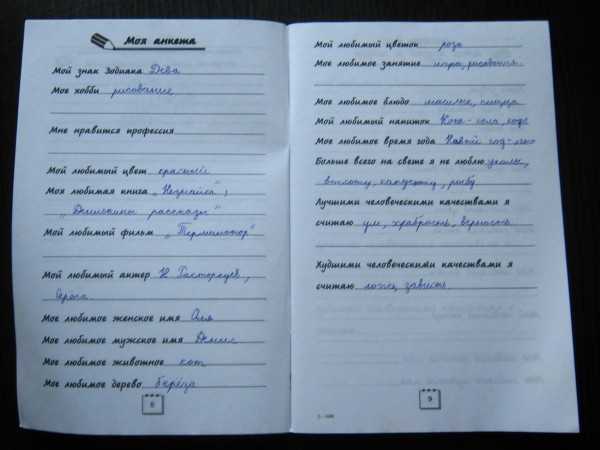 Моя анкета
Мой знак Зодиака Дева
Мое хобби рисование
Мне нравится профессия
Мой любимый цвет красный
Моя любимая книга „Незнайка",
„Денискины рассказы"
Мой любимый фильм „Терминатор"
Мой любимый актер
Мое любимое женское имя Аля
Мое любимое мужское имя Денис
Мое любимое животное кот
Мое любимое дерево берёза
8
Мой любимый цветок роза
Мое любимое занятие игра, рисование
Мое любимое блюдо пицца
Мой любимый напиток Кока-кола, кофе
Мое любимое время года Новый год-
Больше всего на свете я не люблю
высоту, капусту, рыбу
Лучшими человеческими качествами я
считаю ум, храбрость, верность
Худшими человеческими качествами я
считаю ложь, зависть
9